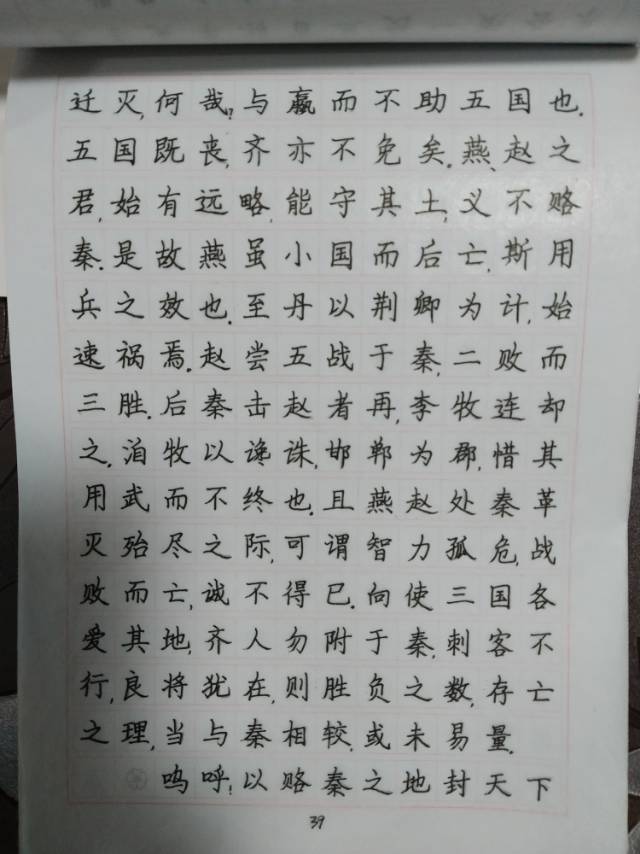 迁灭,何哉?与嬴而不助五国也.
五国既丧,齐亦不免矣.燕、赵之
君,始有远略,能守其土,义不赂
秦.是故燕虽小国而后亡,斯用
兵之效也.至丹以荆卿为计,始
速祸焉.赵尝五战于秦,二败而
三胜.后秦击赵者再,李牧连却
之.洎牧以谗诛,邯郸为郡,惜其
用武而不终也.且燕赵处秦革
灭殆尽之际,可谓智力孤危,战
败而亡,诚不得已.向使三国各
爱其地,齐人勿附于秦,刺客不
行,良将犹在,则胜负之数,存亡
之理,当与秦相较,或未易量.
呜呼!以赂秦之地封天下
39